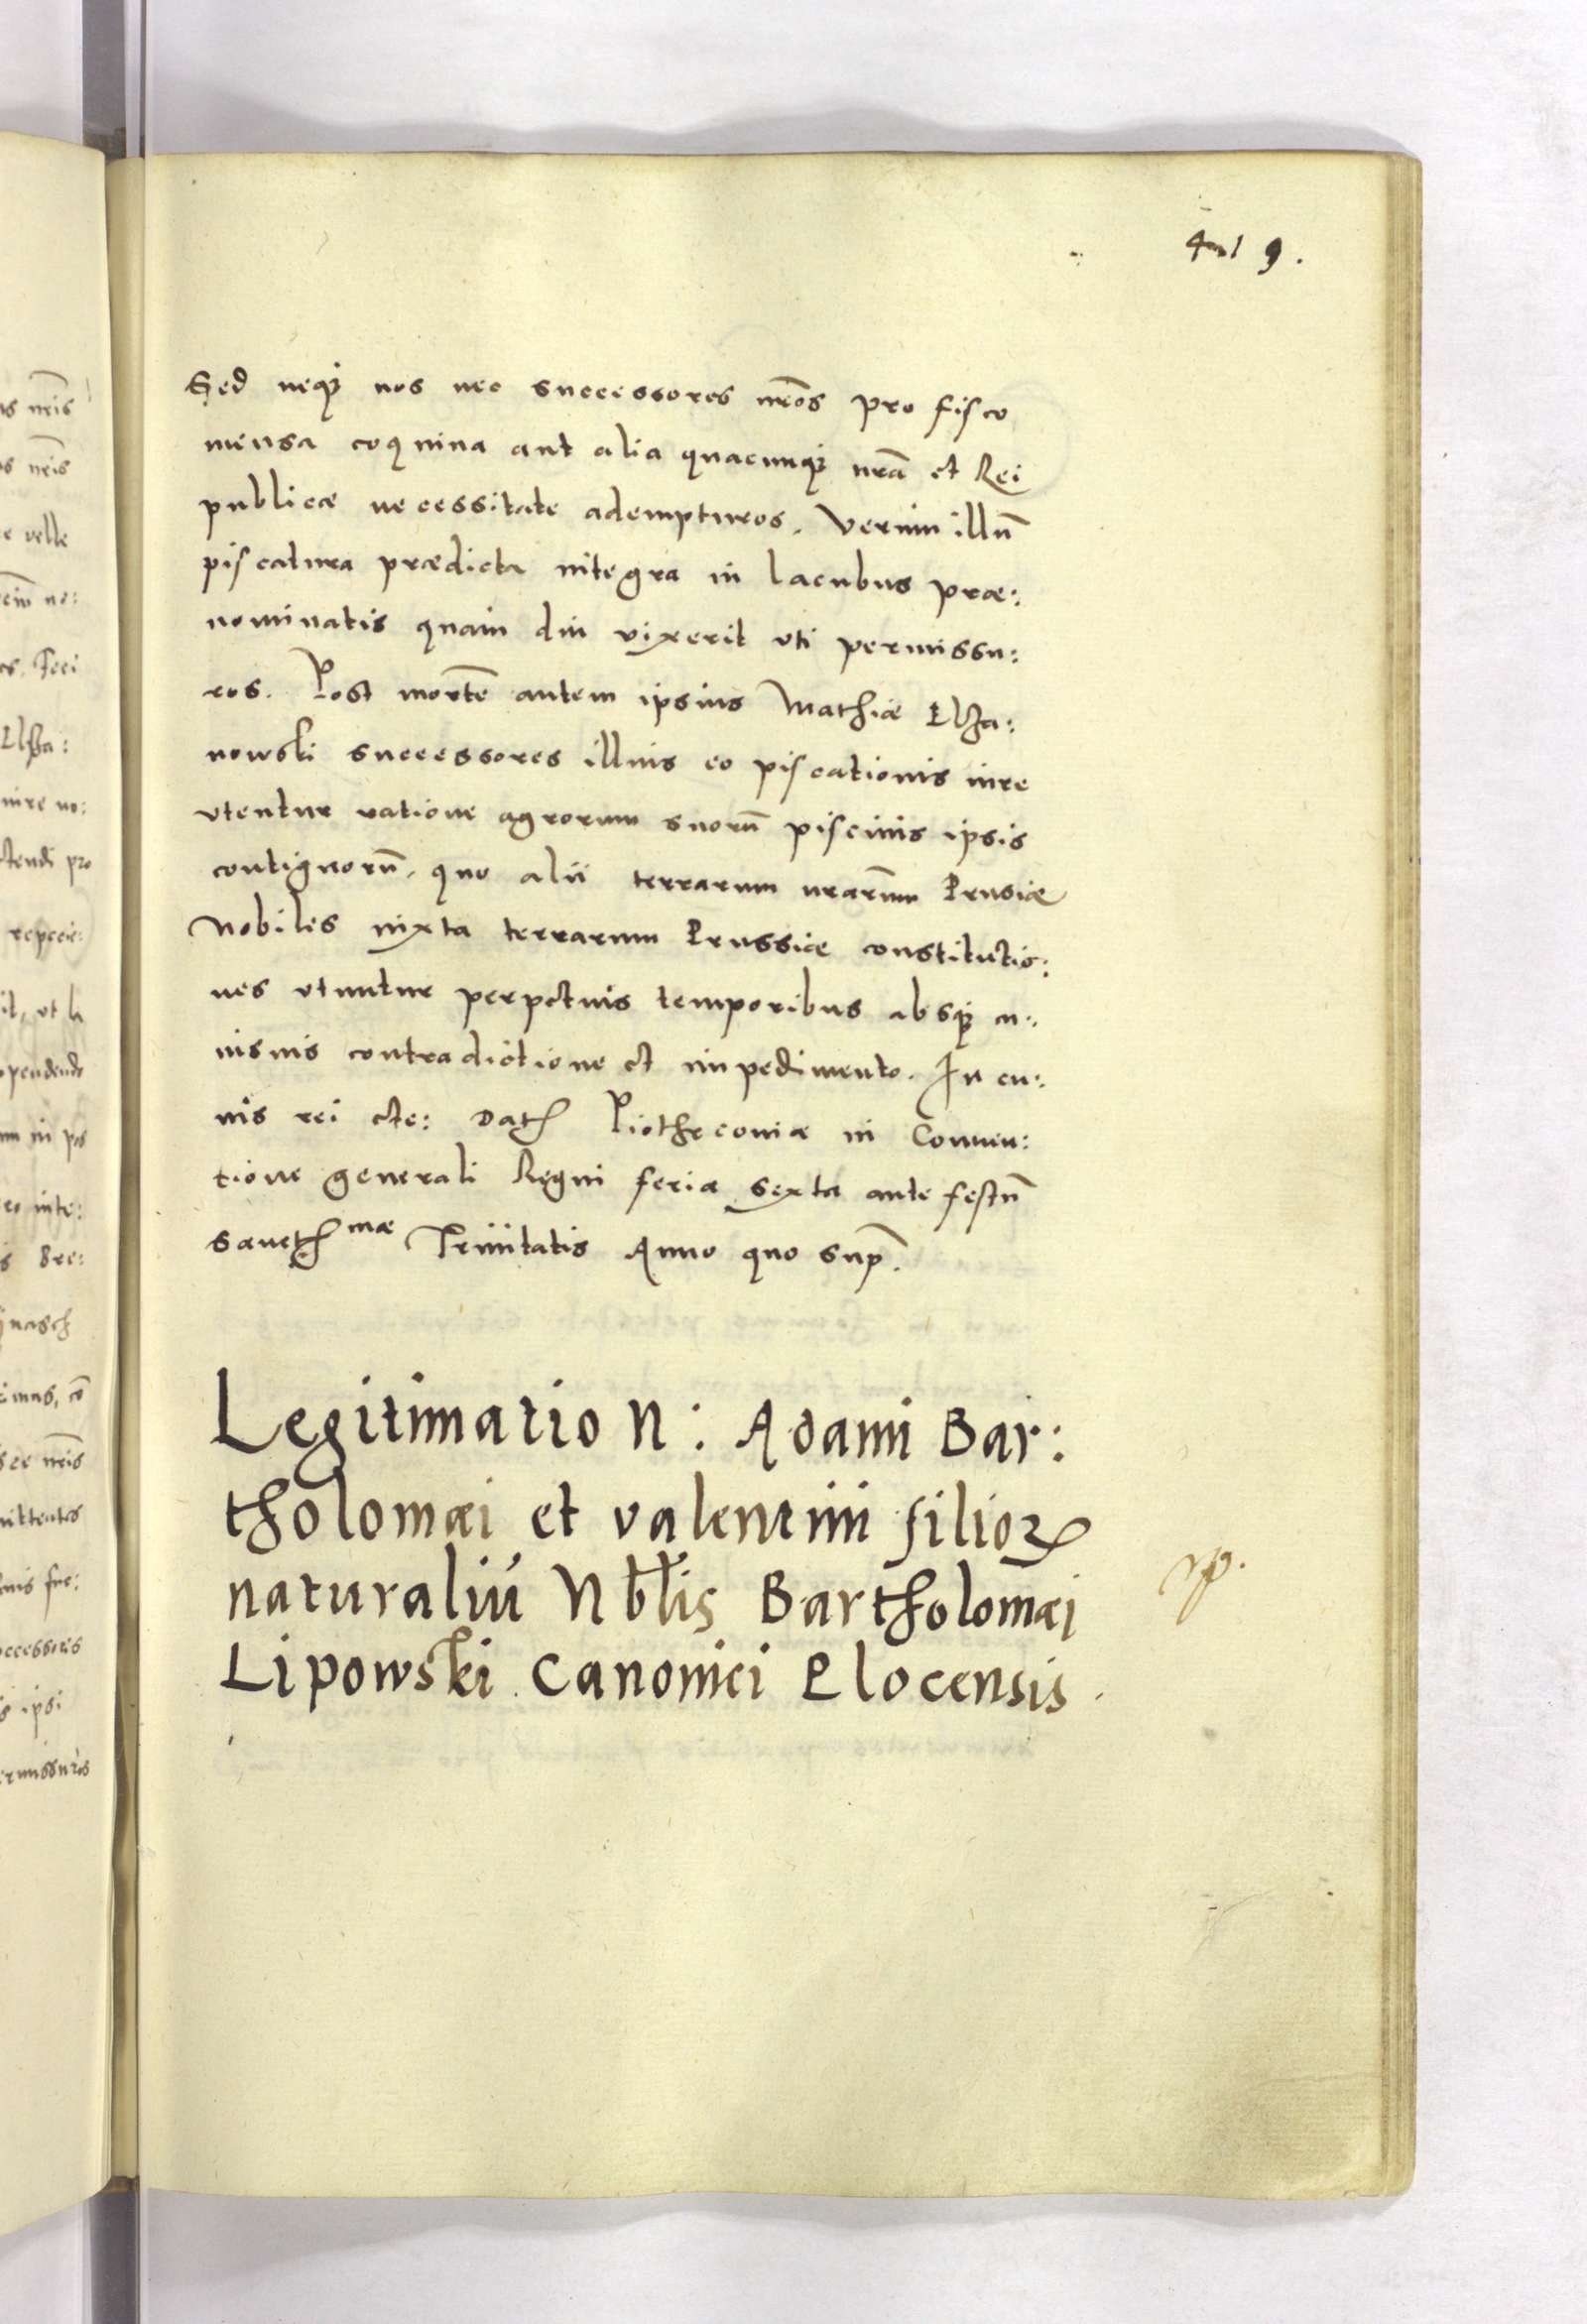 9.
Sed neq₃ nos nec successores nr̃os pro fisco
mensa coquina aut alia quacunq₃ nr̃a et Rei
publicæ necessitate adempturos. Verum illũ
piscatura prædicta integra in lacubus præ:
nominatis quam diu vixerit uti permissu:
ros. Post mortẽ autem ipsius Mathiæ Plża:
nowski successores illius eo piscationis iure
utentur ratione agrorum suorũ piscinis ipsis
contiguorũ, quo alii terrarum nr̃arum Prusiæ
Nobiles iuxta terrarum Prussiæ constitutio:
nes utuntur perpetuis temporibus absq₃ cu:
iusuis contradictione et impedimento. In cu:
ius rei etc: Dat Piotrcouiæ in Conuen:
tione generali Regni feria sexta ante festũ
Sanctmæ Trinitatis Anno quo sup.
Legitimatio N: Adami Bar:
tholomæi et valentini filioꝝ
naturaliũ Nb̃lis Bartholomæi
Lipowski Canonici Plocensis.